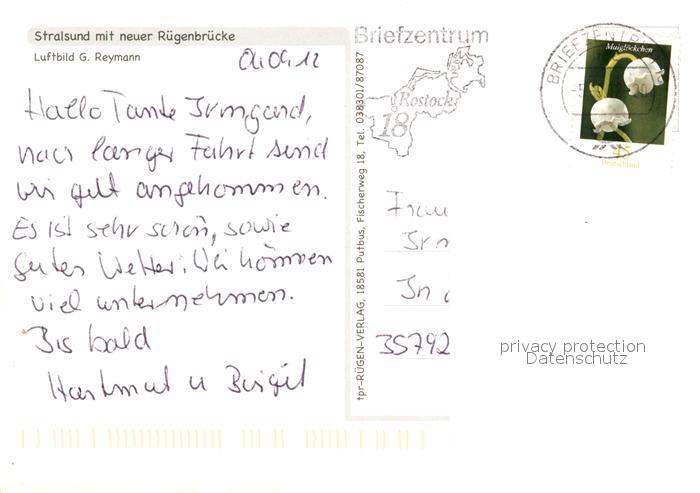 Stralsund mit neuer Rügenbrücke
Luftbild G. Reymann
04.09.12
Hallo Tante Irmgard,
nach langer Fahrt sind
wir gut angekommen.
Es ist sehr schön, sowie
gutes Wetter. Wir können
viel unternehmen.
Bis bald
Hartmut u Birgit
tpr-RÜGEN-VERLAG, 18581 Putbus, Fischerweg 18, Tel. 038301/87087
Briefzentrum
Rostock
18
BRIEFZENTR
Maiglöckchen
45
Deutschland
Frau
Irm
In d
35792
privacy protection
Datenschutz